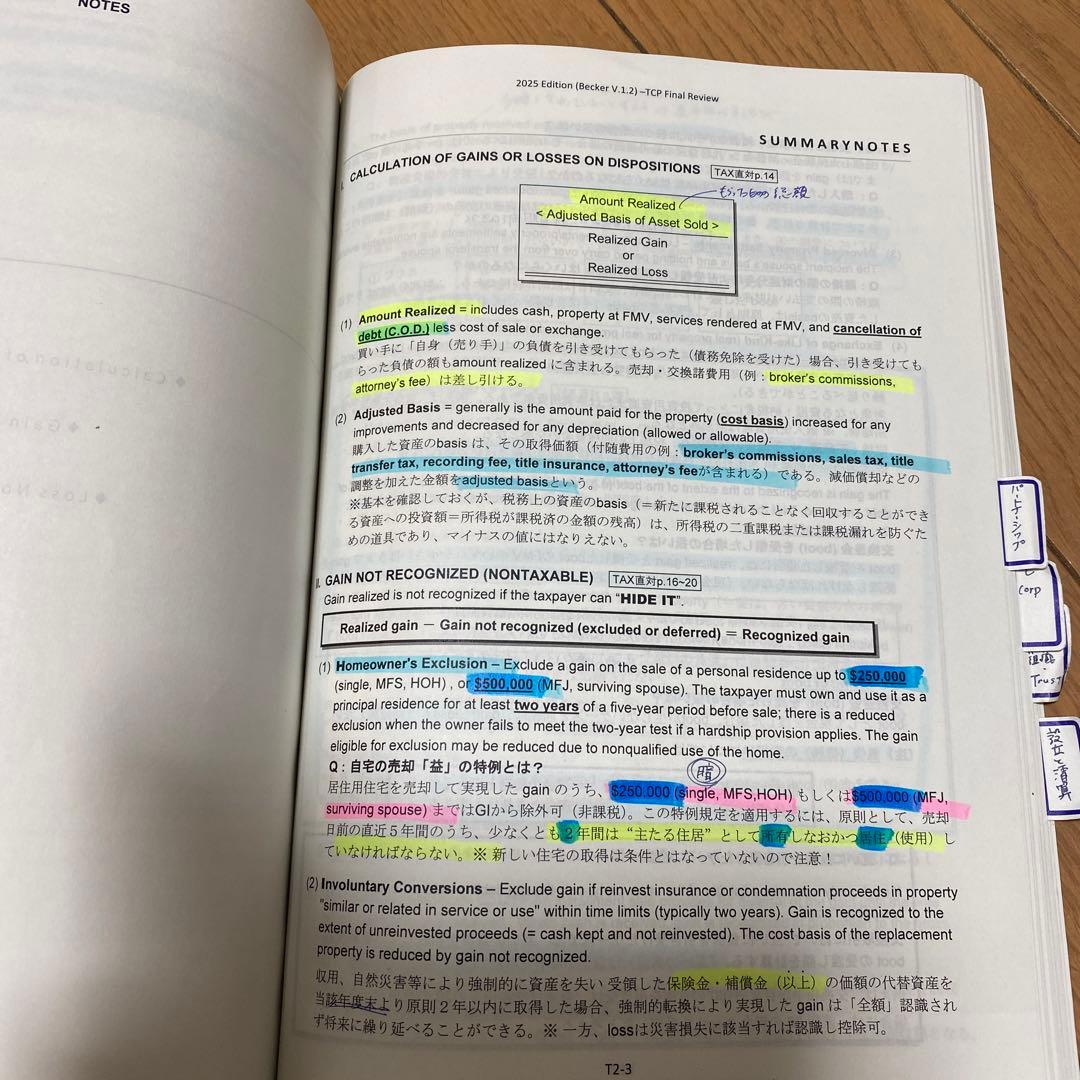 NOTES
2025 Edition (Becker V.1.2) –TCP Final Review
SUMMARYNOTES
I. CALCULATION OF GAINS OR LOSSES ON DISPOSITIONS TAX直対p.14
もらったものの総額
Amount Realized
< Adjusted Basis of Asset Sold >
Realized Gain
or
Realized Loss
(1) Amount Realized = includes cash, property at FMV, services rendered at FMV, and cancellation of
debt (C.O.D.) less cost of sale or exchange.
買い手に「自身（売り手）」の負債を引き受けてもらった（債務免除を受けた）場合、引き受けても
らった負債の額もamount realized に含まれる。売却・交換諸費用（例：broker's commissions,
attorney's fee）は差し引ける。
(2) Adjusted Basis = generally is the amount paid for the property (cost basis) increased for any
improvements and decreased for any depreciation (allowed or allowable).
購入した資産のbasis は、その取得価額（付随費用の例：broker's commissions, sales tax, title
transfer tax, recording fee, title insurance, attorney's feeが含まれる）である。減価償却などの
調整を加えた金額をadjusted basisという。
※基本を確認しておくが、税務上の資産のbasis（＝新たに課税されることなく回収することができ
る資産への投資額＝所得税が課税済の金額の残高）は、所得税の二重課税または課税漏れを防ぐた
めの道具であり、マイナスの値にはなりえない。
II. GAIN NOT RECOGNIZED (NONTAXABLE) TAX直対p.16~20
Gain realized is not recognized if the taxpayer can "HIDE IT".
Realized gain － Gain not recognized (excluded or deferred) ＝ Recognized gain
(1) Homeowner's Exclusion – Exclude a gain on the sale of a personal residence up to $250,000
(single, MFS, HOH) , or $500,000 (MFJ, surviving spouse). The taxpayer must own and use it as a
principal residence for at least two years of a five-year period before sale; there is a reduced
exclusion when the owner fails to meet the two-year test if a hardship provision applies. The gain
eligible for exclusion may be reduced due to nonqualified use of the home.
Q：自宅の売却「益」の特例とは？
暗
居住用住宅を売却して実現した gain のうち、$250,000 (single, MFS,HOH) もしくは$500,000 (MFJ,
surviving spouse) まではGIから除外可（非課税）。この特例規定を適用するには、原則として、売却
日前の直近５年間のうち、少なくとも２年間は"主たる住居"として所有しなおかつ居住（使用）し
ていなければならない。※ 新しい住宅の取得は条件とはなっていないので注意！
(2) Involuntary Conversions – Exclude gain if reinvest insurance or condemnation proceeds in property
"similar or related in service or use" within time limits (typically two years). Gain is recognized to the
extent of unreinvested proceeds (= cash kept and not reinvested). The cost basis of the replacement
property is reduced by gain not recognized.
収用、自然災害等により強制的に資産を失い 受領した保険金・補償金（以上）の価額の代替資産を
当該年度末より原則２年以内に取得した場合、強制的転換により実現した gain は「全額」認識され
ず将来に繰り延べることができる。※ 一方、lossは災害損失に該当すれば認識し控除可。
T2-3
パートナーシップ
Corp
組織
Trust
設立と清算